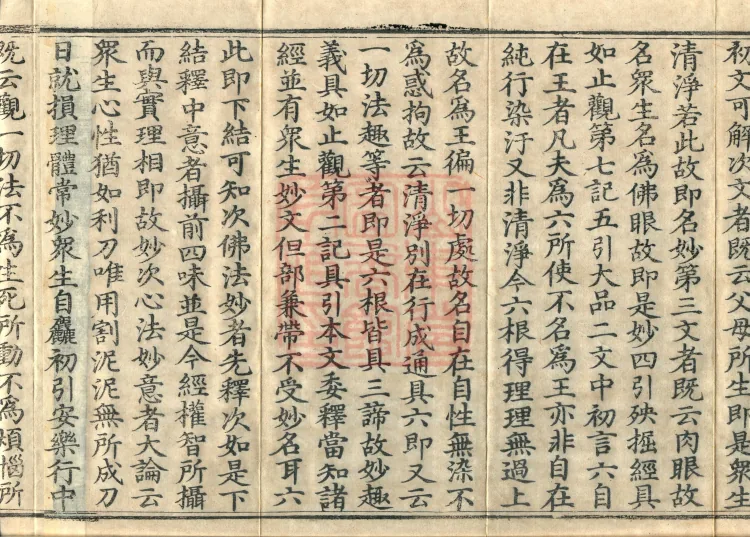 初文可解次文者既云父母所生即是衆生
清淨若此故即名妙第三文者既云肉眼故
名衆生名爲佛眼故即是妙四引殃掘經具
如止觀第七記五引大品二文中初言六自
在王者凡夫爲六所使不名爲王亦非自在
純行染汙又非清淨今六根得理理無過上
故名爲王徧一切處故名自在自性無染不
爲惑拘故云清淨別在行成通具六即又云
一切法趣等者即是六根皆具三諦故妙趣
義具如止觀第二記具引本文委釋當知諸
經並有衆生妙文但部兼帶不受妙名耳六
此即下結可知次佛法妙者先釋次如是下
結釋中意者攝前四味並是今經權智所攝
而與實理相即故妙次心法妙意者大論云
衆生心性猶如利刀唯用割泥泥無所成刀
日就損理體常妙衆生自麤初引安樂行中
既云觀一切法不爲生死所動不爲煩惱所